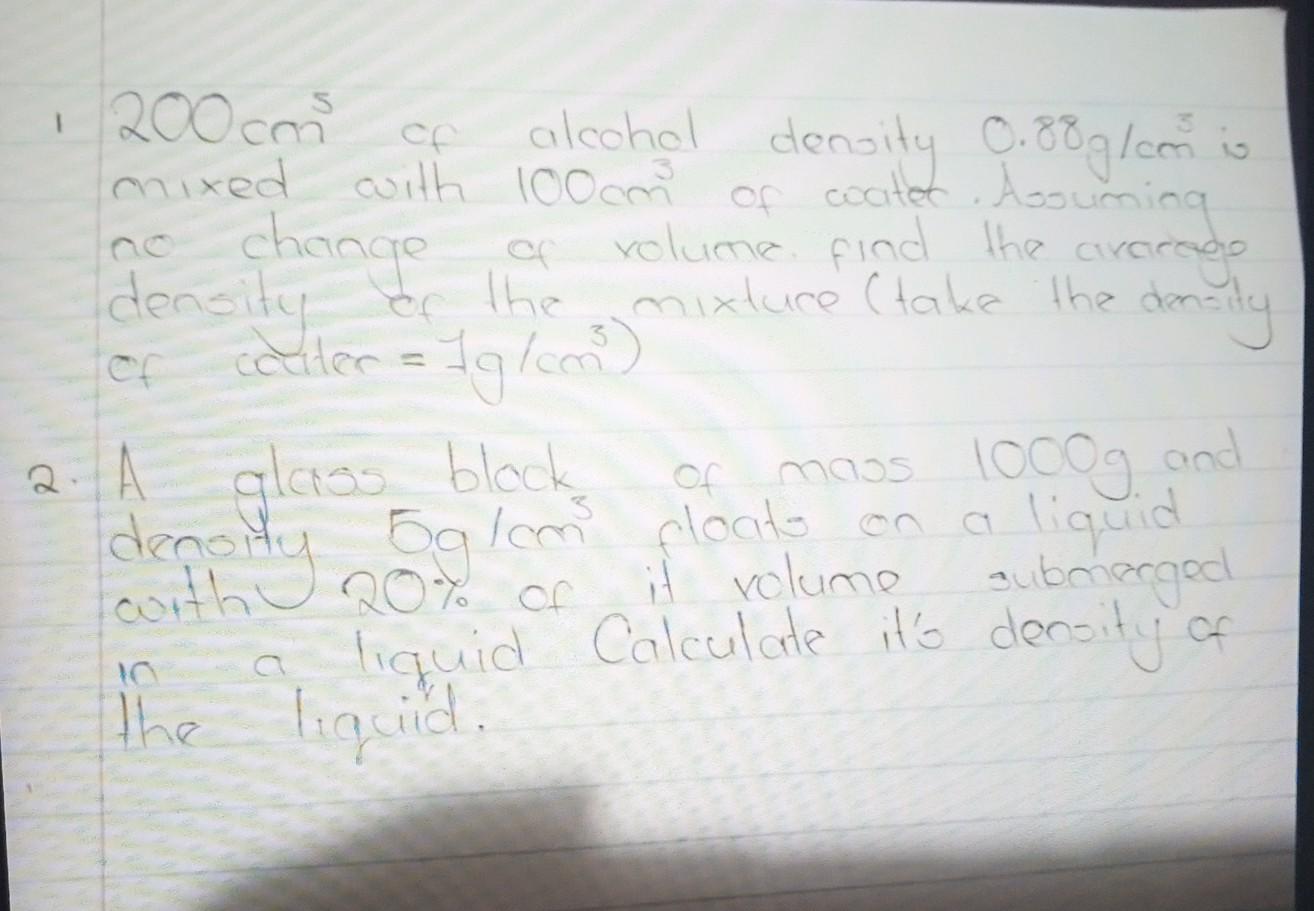 1 200cm³ of alcohol density 0.88g/cm³ is
mixed with 100cm³ of water. Assuming
no change of volume. find the avarage
density of the mixture (take the density
of water = 1g/cm³)
2. A glass block of mass 1000g and
density 5g/cm³ floats on a liquid
with 20% of it volume submerged
in a liquid Calculate it's density of
the liquid.